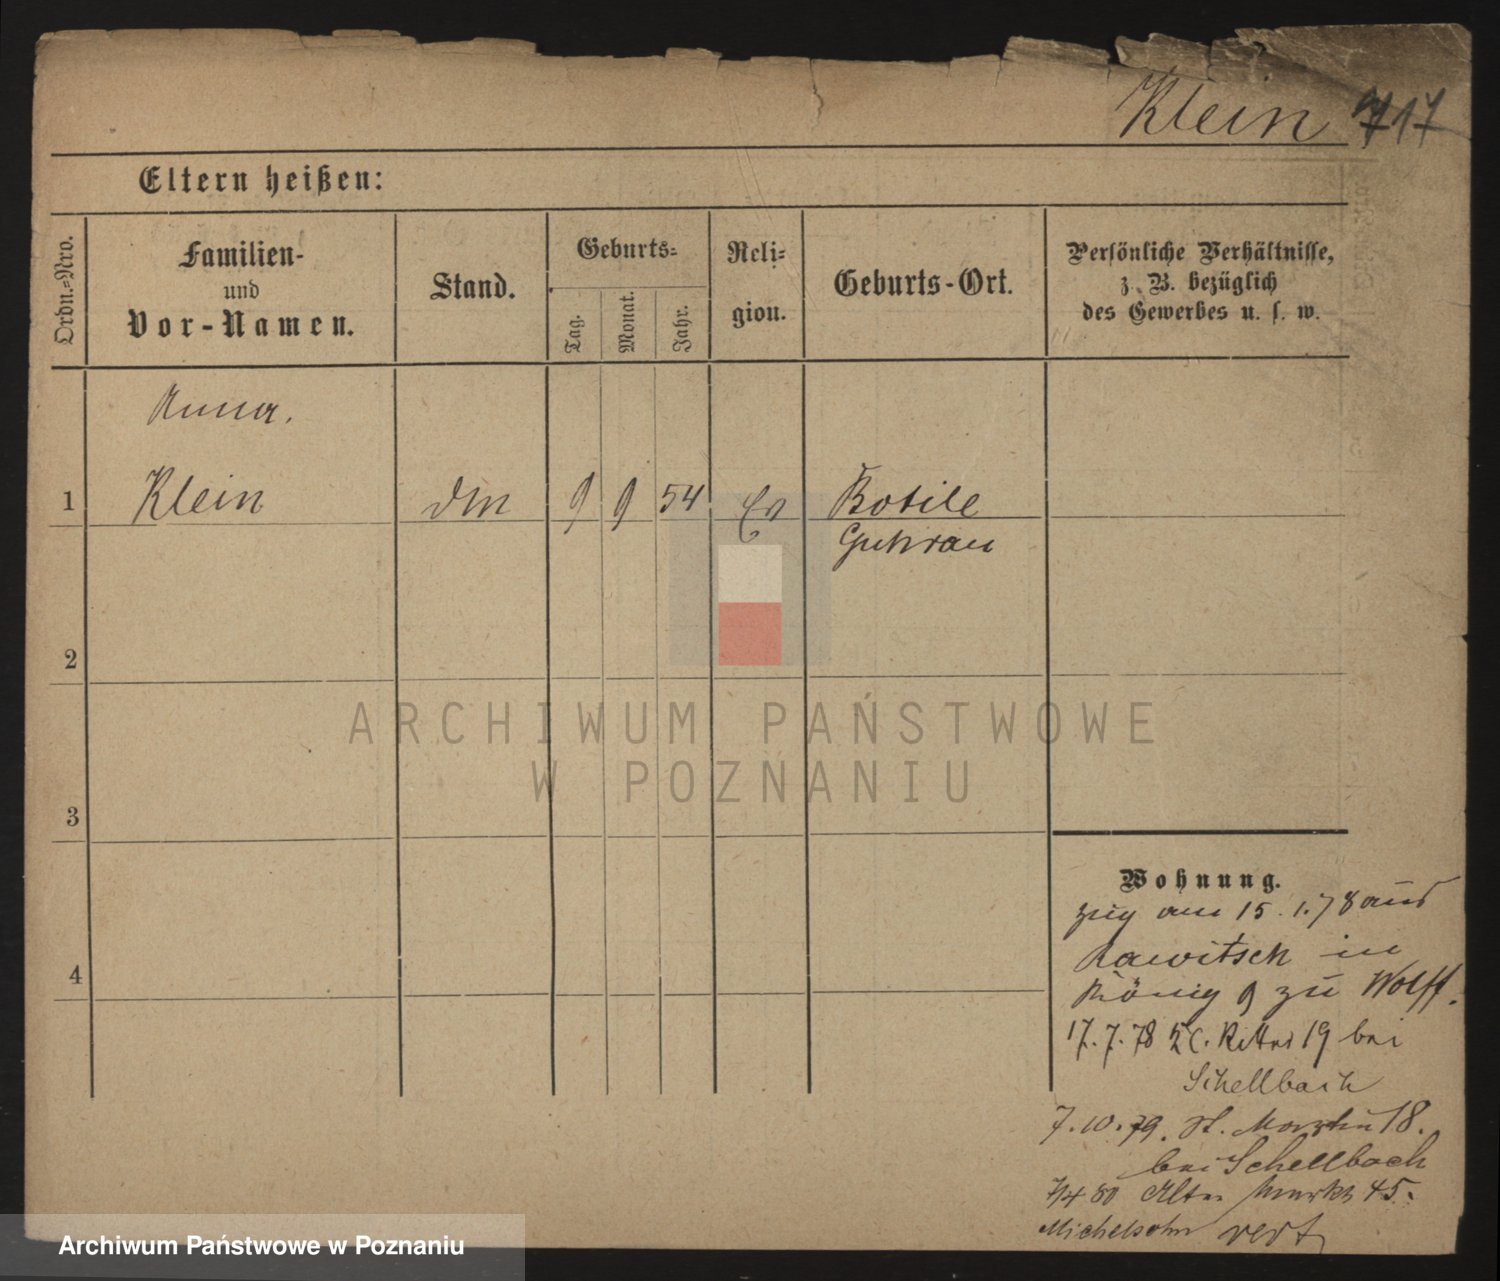 Klein 717
Eltern heißen:
Ordn.-Nro.
Familien-
und
Vor-Namen.
Stand.
Geburts-
Tag.
Monat.
Jahr.
Reli-
gion.
Geburts-Ort.
Persönliche Verhältnisse,
z. B. bezüglich
des Gewerbes u. s. w.
Anna.
1 Klein 9 9 54 Ev
Guhrau
2
3
4
ARCHIWUM PAŃSTWOWE
W POZNANIU
Wohnung.
zug am 15. 1. 78 aus
Rawitsch in
König 9 zu Wolff.
17. 7. 78 Ritter 19 bei
Schellbach
7. 10. 79. St. Martin 18.
bei Schellbach
7/4 80 Alter Markt 45.
Michelsohn
Archiwum Państwowe w Poznaniu